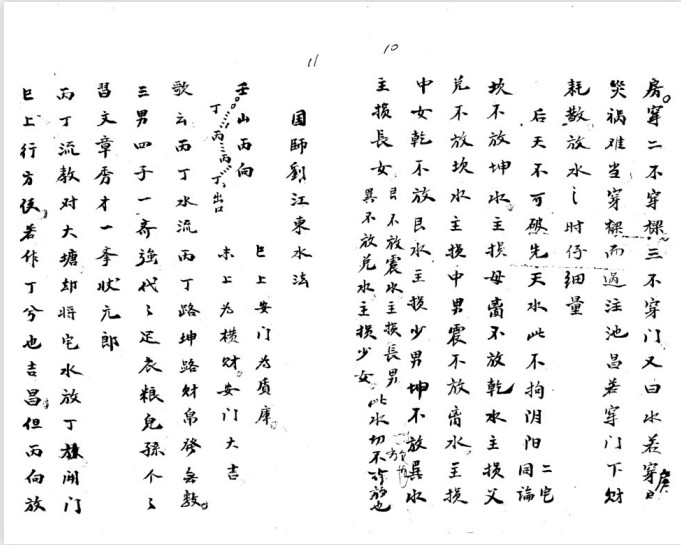 10
房。穿二不穿樑三不穿门又曰水若穿房
災祸难当穿樑而過注池昌若穿门下财
耗散放水之时仔细量
后天不可破先天水此不拘阴阳二宅同論
坎不放坤水主损母离不放乾水主损父
兑不放坎水主损中男震不放离水主损
中女乾不放艮水主损少男坤不放巽水
主损長女艮不放震水主损長男巽不放兑水主损少女此水切不可放也
11
国師劉江東水法
壬山丙向
丁丙丙丁出口
巳上安门为质庫
未上为横财安门大吉
歌云丙丁水流丙丁路坤路财帛發無数
三男四子一齊強代々足衣粮兒孫个々
習文章秀才一举状元郎
丙丁流教对大塘却将宅水放丁旗開门
巳上行方伎若作丁兮也吉昌但丙向放